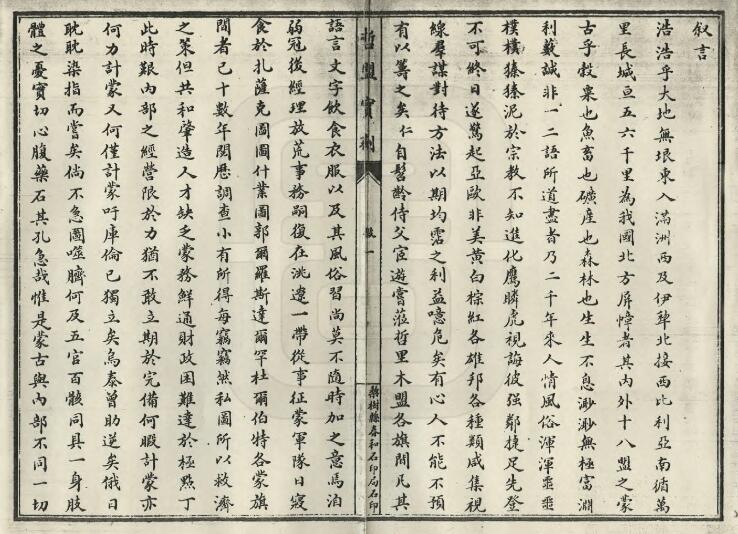 叙言
浩浩乎大地無垠東入滿洲西及伊犂北接西比利亞南循萬
里長城亘五六千里為我國北方屏幛者其內外十八盟之蒙
古乎穀粟也魚畜也礦產也森林也生生不息渺渺無極富淵
利藪誠非一二語所道盡者乃二千年來人情風俗渾渾噩噩
樸樸獉獉泥於宗教不知進化鷹瞵虎視誨彼强鄰捷足先登
不可終日遂驚起亞歐非美黃白棕紅各雄邦各種類咸集視
線羣謀對待方法以期均霑之利益噫危矣有心人不能不預
有以籌之矣仁自髫齡侍父宦遊嘗蒞哲里木盟各旗間凡其
哲盟實剂
叙一
梨樹縣春和石印局石印
語言文字飲食衣服以及其風俗習尚莫不隨時加之意焉洎
弱冠後經理放荒事務嗣復在洮遼一帶從事征蒙軍隊日寢
食於扎薩克圖圖什業圖郭爾羅斯達爾罕杜爾伯特各蒙旗
間者已十數年閱歷調查小有所得每竊竊然私圖所以救濟
之策但共和肇造人才缺乏蒙務鮮通財政困難達於極點丁
此時艱內部之經營限於力猶不敢立期於完備何暇計蒙亦
何力計蒙又何僅計蒙吁庫倫已獨立矣烏泰曾助逆矣俄日
眈眈染指而嘗矣倘不急圖噬臍何及五官百骸同具一身肢
體之憂實切心腹藥石其孔急哉惟是蒙古與內部不同一切